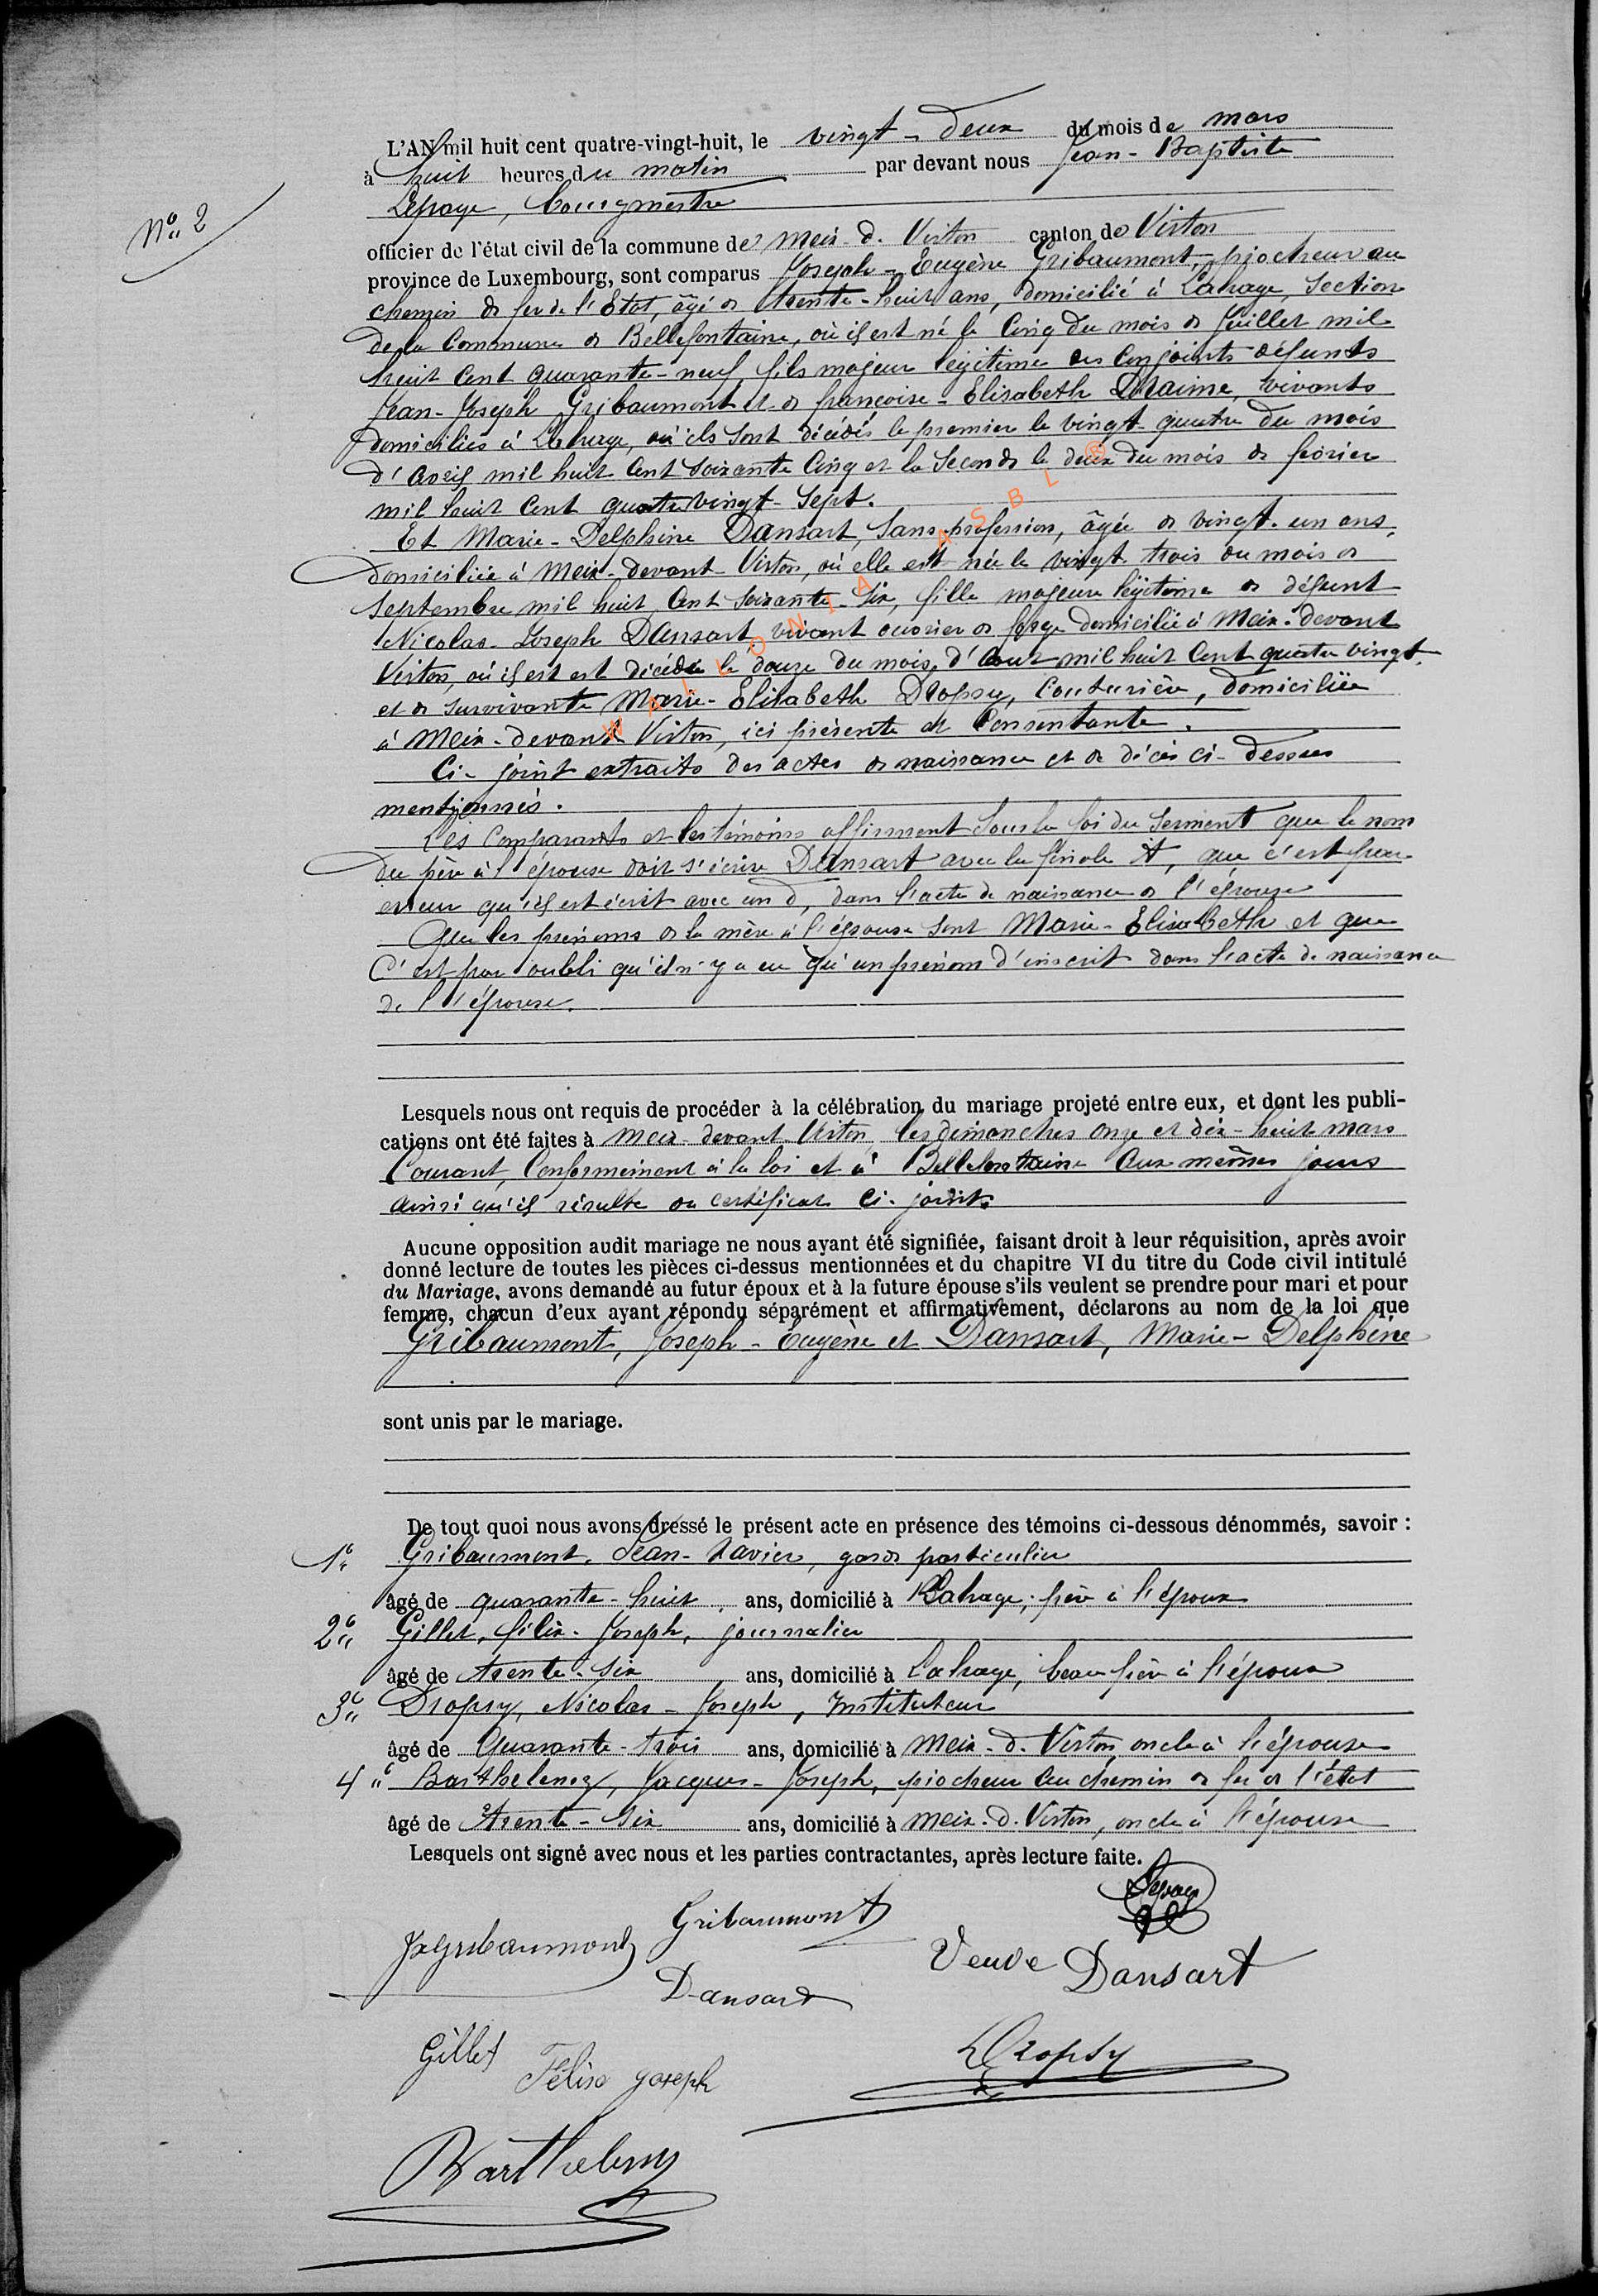 L'AN mil huit cent quatre-vingt-huit, le vingt-deux du mois de mars
à huit heures du matin par devant nous Jean-Baptiste
Lepage, bourgmestre
N° 2
officier de l'état civil de la commune de Meix-d. Virton canton de Virton
province de Luxembourg, sont comparus Joseph-Eugène Gribaumont, piocheur au
chemin de fer de l'Etat, âgé de trente-huit ans, domicilié à Lahage, Section
de la Commune de Bellefontaine, où il est né le Cinq du mois de Juillet mil
huit Cent quarante-neuf fils majeur légitime des Conjoints défunts
Jean-Joseph Gribaumont et de françoise-Elisabeth vivants
domiciliés à Lahage, où ils sont décédés le premier le vingt-quatre du mois
d'avril mil huit Cent soixante Cinq et la Seconde le deux du mois de février
mil huit Cent quatre vingt-Sept.
Et Marie-Delphine Dansart, Sans profession, âgée de vingt-un ans,
domiciliée à Meix-devant-Virton, où elle est née le vingt trois du mois de
Septembre mil huit Cent soixante-Six, fille majeure légitime de défunt
Nicolas-Joseph Dansart vivant ouvrier de forge domicilié à Meix-devant
Virton, où il est est décédé le douze du mois d'Aout mil huit Cent quatre vingt
et de survivante Marie-Elisabeth Dropsy, Couturière, domiciliée
à Meix-devant Virton, ici présente et Consentante.
Ci-joint extraits des actes de naissance et de décès ci-dessus
mentionnés.
Les Comparants et les témoins affirment Sous la foi du Serment que le nom
du père à l'épouse doit s'écrire Dansart avec la finale t, que c'est par
erreur qu'il est écrit avec un d, dans l'acte de naissance de l'épouse
Que les prénoms de la mère à l'épouse sont Marie-Elisabeth et que
C'est par oubli qu'il n'y a eu qu'un prénom d'inscrit dans l'acte de naissance
de l'épouse.
Lesquels nous ont requis de procéder à la célébration du mariage projeté entre eux, et dont les publi-
cations ont été faites à Meix-devant-Virton les dimanches onze et dix-huit mars
Courant, Conformément à la loi et à Bellefontaine Aux mêmes jours
ainsi qu'il résulte du certificat Ci-joint.
Aucune opposition audit mariage ne nous ayant été signifiée, faisant droit à leur réquisition, après avoir
donné lecture de toutes les pièces ci-dessus mentionnées et du chapitre VI du titre du Code civil intitulé
du Mariage, avons demandé au futur époux et à la future épouse s'ils veulent se prendre pour mari et pour
femme, chacun d'eux ayant répondu séparément et affirmativement, déclarons au nom de la loi que
Gribaumont, Joseph-Eugène et Dansart, Marie-Delphine
sont unis par le mariage.
De tout quoi nous avons dressé le présent acte en présence des témoins ci-dessous dénommés, savoir :
1° Gribaumont, Jean-Xavier, garde particulier
âgé de quarante-huit ans, domicilié à Lahage, frère à l'époux
2° Gillet, félix-Joseph, journalier
âgé de trente-Six ans, domicilié à Lahage, beau frère à l'époux
3° Dropsy, Nicolas-Joseph, Instituteur
âgé de Quarante-trois ans, domicilié à Meix-d. Virton oncle à l'épouse
4° Barthelemy, Jacques-Joseph, piocheur au chemin de fer de l'état
âgé de Trente-Six ans, domicilié à Meix-d. Virton, oncle à l'épouse
Lesquels ont signé avec nous et les parties contractantes, après lecture faite.
Lepage
Gribaumont
JxGribaumont
Veuve Dansart
Dansart
Gillet Félix Joseph
Dropsy
Barthelemy
WALLONIA ASBL ®